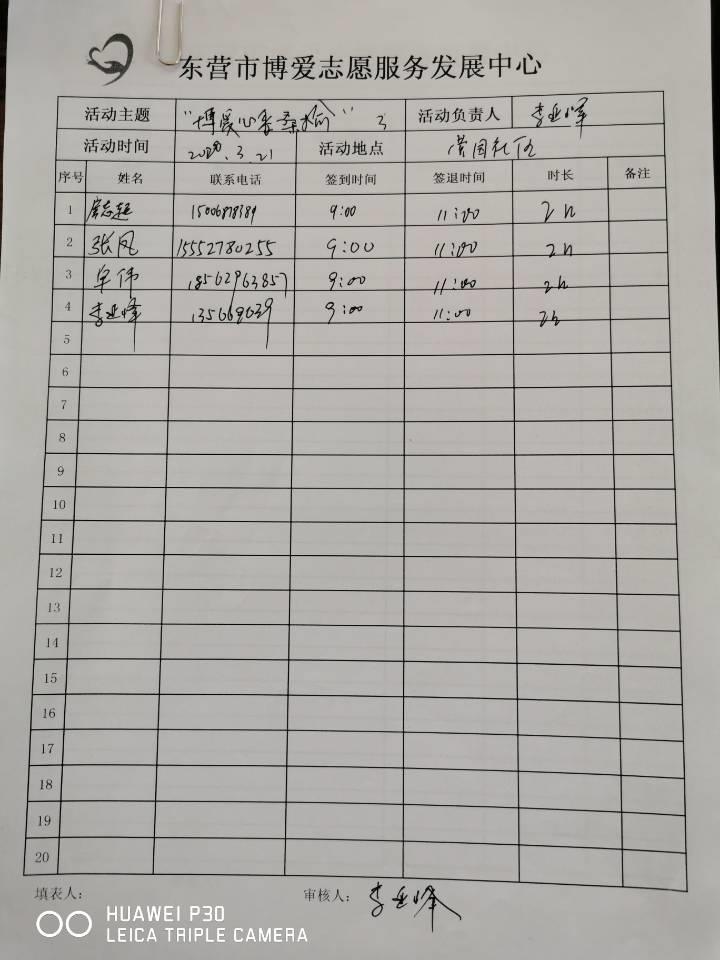 东营市博爱志愿服务发展中心
活动主题 "博爱心系桑榆" 活动负责人 李亚峰
活动时间 2020.3.21 活动地点
序号 姓名 联系电话 签到时间 签退时间 时长 备注
1 9:00 11:00 2h
2 张凤 15552780255 9:00 11:00 2h
3 18562963857 9:00 11:00 2h
4 李亚峰 9:00 11:00 2h
5
6
7
8
9
10
11
12
13
14
15
16
17
18
19
20
填表人: 审核人: 李亚峰
HUAWEI P30
LEICA TRIPLE CAMERA